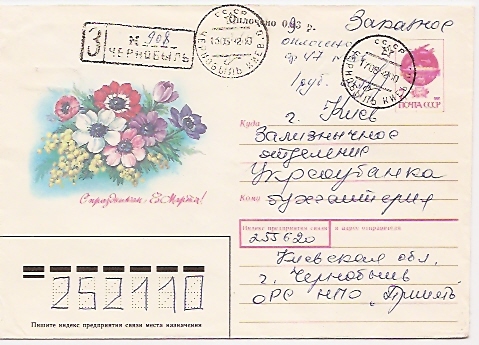 Оплочено 0,93 р.
Заказное
оплочено
1 руб.
З № 908
ЧЕРНОБЫЛЬ
СССР
СССР
ПОЧТА СССР
С праздником 8 Марта!
Куда г. Киев
Зализничное
отделение
Укрсоцбанка
Кому бухгалтерия
Индекс предприятия связи и адрес отправителя
255620
Киевская обл.
г. Чернобыль
ОРС НПО „Припять"
252110
Пишите индекс предприятия связи места назначения